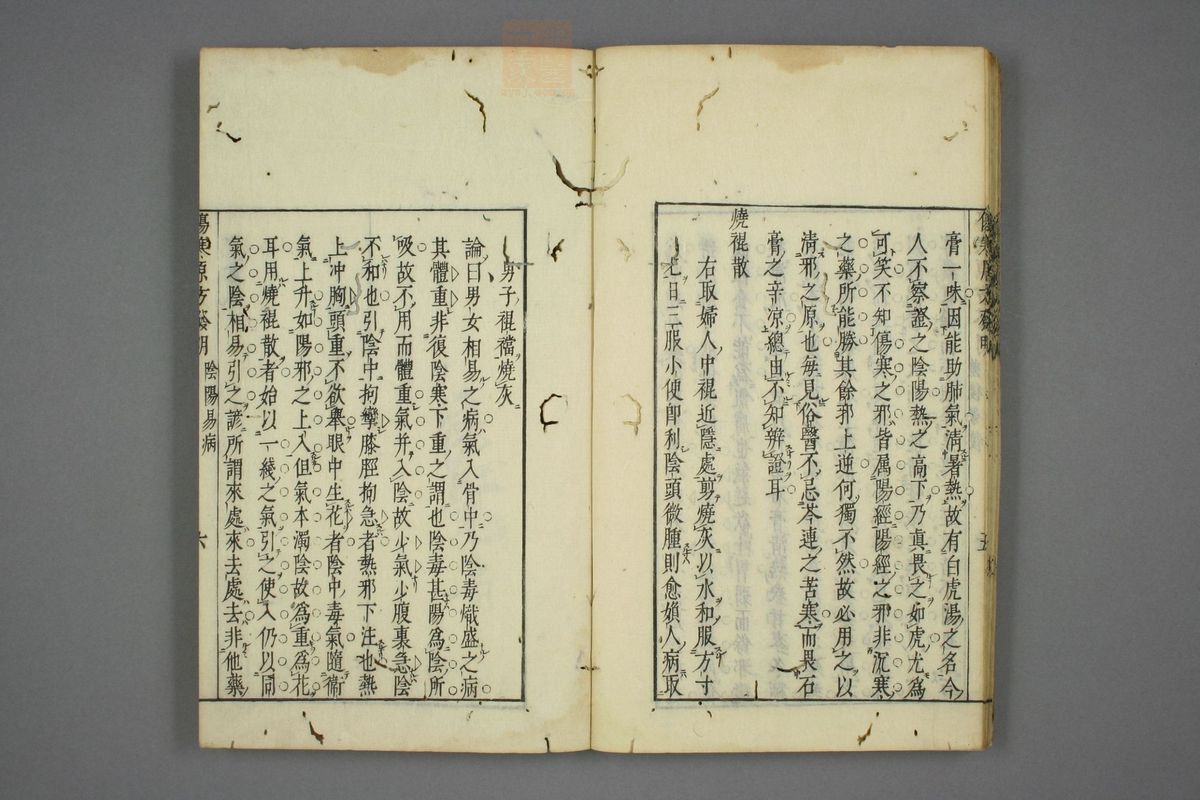 膏一味因能助肺氣清暑熱故有白虎湯之名今
人不察證之陰陽熱之高下乃真畏之如虎尤為
可笑不知傷寒之邪皆属陽經陽經之邪非沉寒
之藥所能勝其餘邪上逆何獨不然故必用之以
清邪之原也每見俗醫不忌芩連之苦寒而畏石
膏之辛凉總由不知辨證耳
燒裩散
右取婦人中裩近隱處剪燒灰以水和服方寸
匕日三服小便卽利陰頭微腫則愈婦人病取
男子裩襠燒灰
論曰男女相易之病氣入骨中乃陰毒熾盛之病
其體重非復陰寒下重之謂也陰毒甚陽為陰所
吸故不用而體重氣并入陰故少氣少腹裏急陰
不和也引陰中拘攣膝脛拘急者熱邪下注也熱
上冲胸頭重不欲舉眼中生花者陰中毒氣隨衝
氣上升如陽邪之上入但氣本濁陰故為重為花
耳用燒裩散者始以一綫之氣引之使入仍以同
氣之陰相易引之諺所謂來處來去處去非他藥
陰陽易病
六